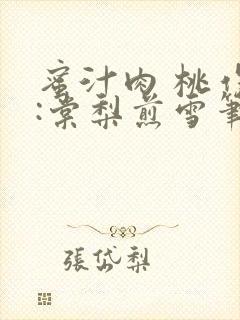 蜜汁肉桃作
:棠梨煎雪筆
張岱梨